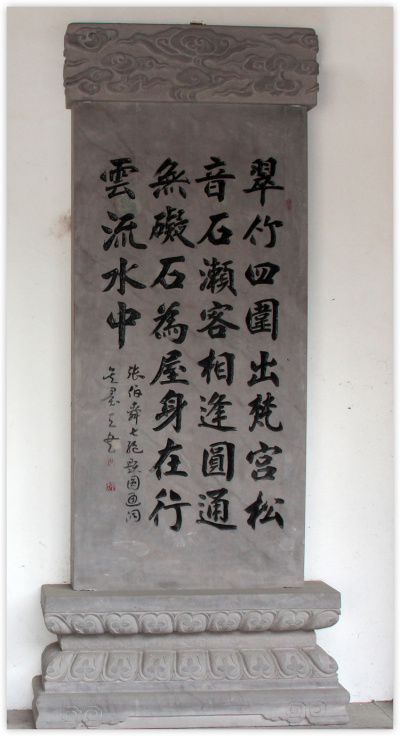 翠竹四圍出梵宮松
音石瀨客相逢圓通
無礙石為屋身在行
雲流水中
張伯舜七絕題圓通洞